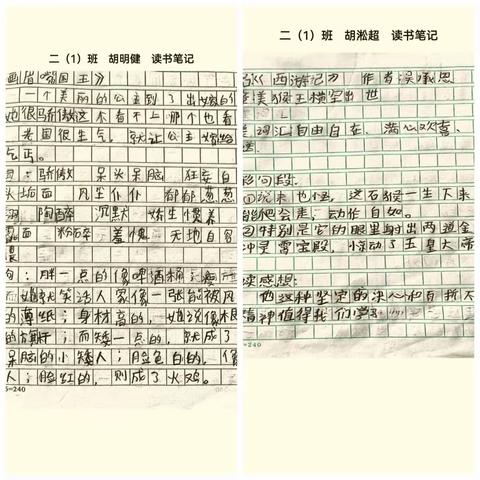 二（1）班 胡明健 读书笔记
画眉嘴国王》
一个美丽的公主到了出嫁
她很骄傲这个看不上那个也看
老国很生气，就让公主嫁给
乞丐。
骄傲 呆头呆脑 狂妄自
头垢面 凡生仆仆 郁郁葱葱
陶醉 沉默 娇生惯养
粉碎 羞愧 无地自容
句：胖一点的像啤酒桶；瘦
而她就笑话人家像一张能被风
的薄纸；身材高的，她说像木根
的旗杆；而矮一点的，就成了
呆脑的小矮人；脸色白的，像
人；脸红的，则成了火鸡。
5=240
二（1）班 胡淞超 读书笔记
《西游记》 作者吴承恩
美猴王横空出世
词汇自由自在、满心欢喜、
句段
①说来也怪，这石猴一生下来
能爬会走，动作自如。
②特别是它的眼里射出两道金
冲灵雷宝殿，惊动了玉皇大帝
读感想：
他这种坚定的决心和自折不
精神值得我们学习……
=240